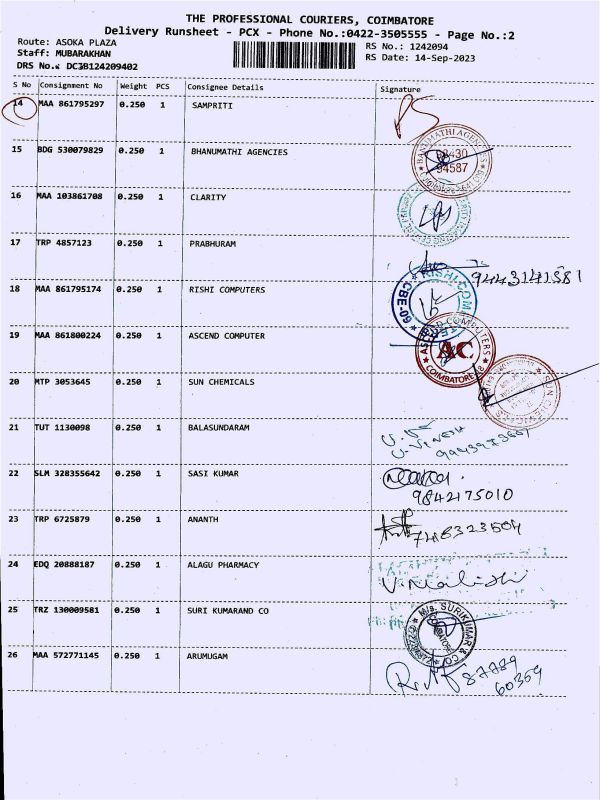 THE PROFESSIONAL COURIERS, COIMBATORE
Delivery Runsheet - PCX - Phone No.:0422-3505555 - Page No.:2
Route: ASOKA PLAZA
RS No.: 1242094
Staff: MUBARAKHAN
RS Date: 14-Sep-2023
DRS No.: DCJB124209402
S No Consignment No Weight PCS Consignee Details Signature
14 MAA 861795297 0.250 1 SAMPRITI
15 BDG 530079829 0.250 1 BHANUMATHI AGENCIES
BANUMATHI AGENCIES
98430
94587
16 MAA 103861708 0.250 1 CLARITY
17 TRP 4857123 0.250 1 PRABHURAM
9443141581
18 MAA 861795174 0.250 1 RISHI COMPUTERS
RISHI COM
CBE-60
19 MAA 861800224 0.250 1 ASCEND COMPUTER
COMPUTERS
AC
COIMBATORE
20 MTP 3053645 0.250 1 SUN CHEMICALS
SUN CHEMICALS
21 TUT 1130098 0.250 1 BALASUNDARAM
22 SLM 328355642 0.250 1 SASI KUMAR
9842175010
23 TRP 6725879 0.250 1 ANANTH
24 EDQ 20888187 0.250 1 ALAGU PHARMACY
25 TRZ 130009581 0.250 1 SURI KUMARAND CO
M/s. SURIKUMAR & CO
COIMBATORE
26 MAA 572771145 0.250 1 ARUMUGAM
87789
60359